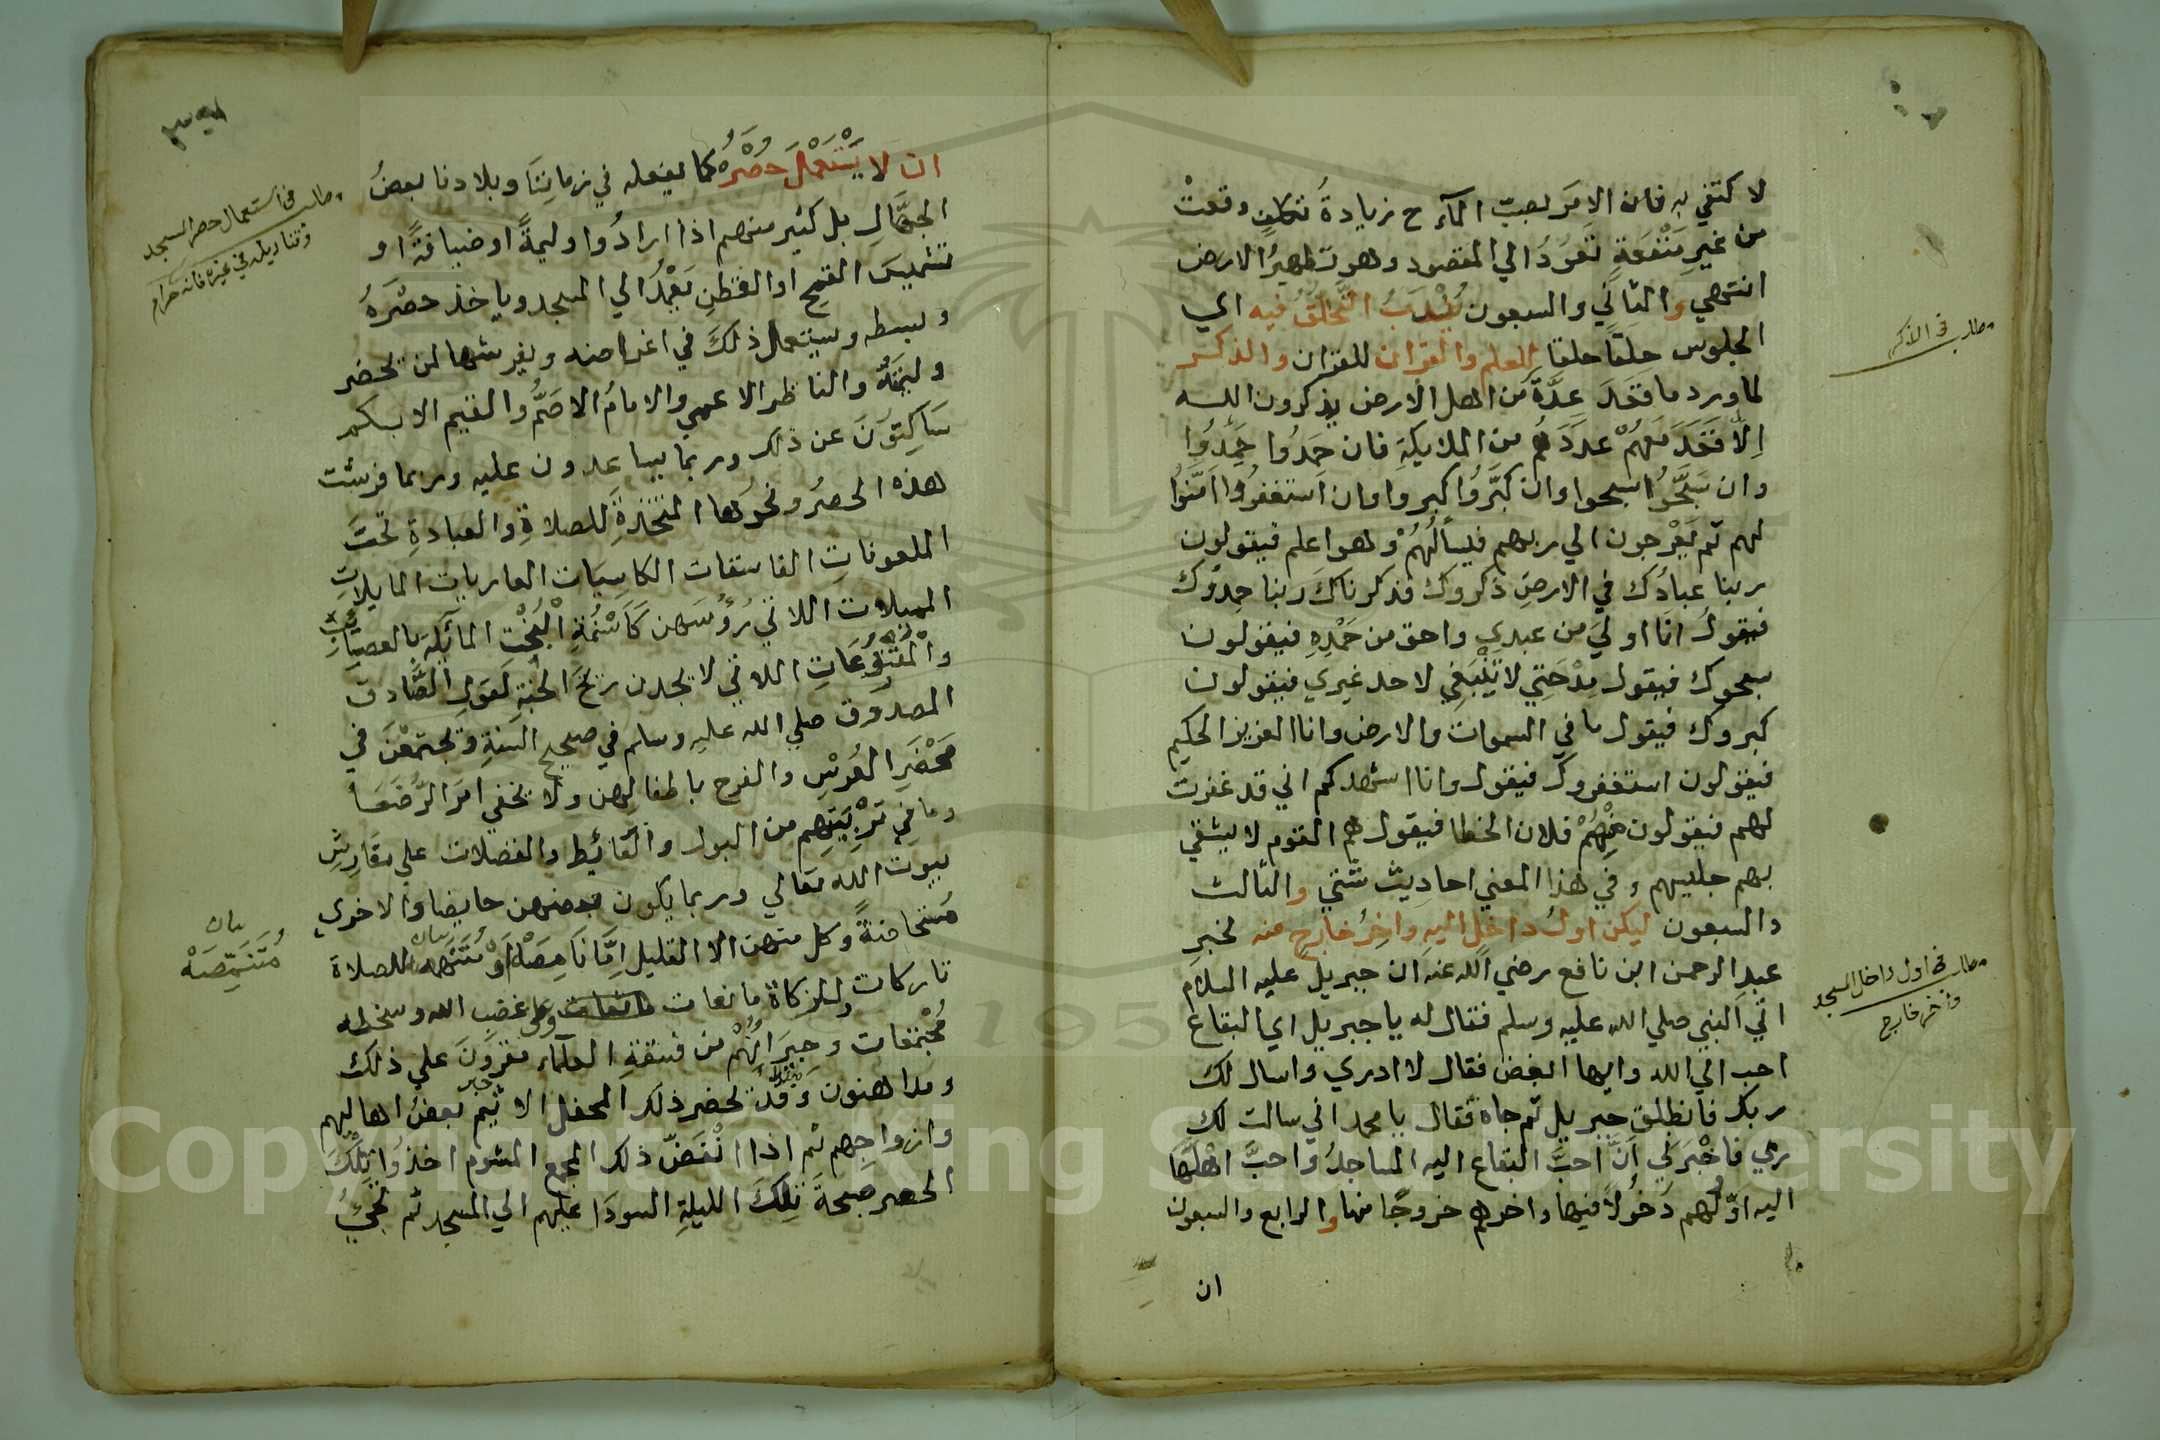 لا كتفي به فان الامر بصب المآء ح زيادة تكلف وقعت
من غير منفعة تعود الي المقصود وهو تطهير الارض
انتهي والثاني والسبعون يندب التحلق فيه اي
الجلوس حلقا حلقا للعلم والقران للقران والذكر
لما ورد ما قعد عدة من اهل الارض يذكرون الله
الا قعد معهم عددهم من الملايكة فان حمدوا حمدوا
وان سبحوا سبحوا وان كبروا كبروا وان استغفروا امنوا
لهم ثم يعرجون الي ربهم فيسألهم وهو اعلم فيقولون
ربنا عبادك في الارض ذكروك فذكرناك ربنا حمدوك
فيقول انا اولي من عبدي واحق من حمده فيقولون
سبحوك فيقول مدحتي لا تنبغي لاحد غيري فيقولون
كبروك فيقول ما في السموات والارض وانا العزيز الحكيم
فيقولون استغفروك فيقول وانا اشهدكم اني قد غفرت
لهم فيقولون فيهم فلان الخطا فيقول هم القوم لا يشقي
بهم جليسهم وفي هذا المعني احاديث شتي والثالث
والسبعون ليكن اول داخل اليه واخر خارج منه لخبر
عبد الرحمن ابن نافع رضي الله عنه ان جبريل عليه السلام
اتي النبي صلي الله عليه وسلم فقال له يا جبريل اي البقاع
احب الي الله وايها ابغض فقال لا ادري واسال لك
ربك فانطلق جبريل ثم جاه فقال يا محمد اني سالت لك
ربي فاخبرني ان احب البقاع اليه المساجد واحب اهلها
اليه اولهم دخولا فيها واخرهم خروجا منها والرابع والسبعون
ان
مطلب في الذكر
مطلب في اول داخل المسجد
واخر خارج
ان لا يستعمل حصره كما يفعله في زماننا وبلادنا بعض
الجهال بل كثير منهم اذا ارادوا وليمة او ضيافة او
تشميس القمح او القطن يعمد الي المسجد وياخذ حصره
وبسطه ويستعمل ذلك في اغراضه ويفرشها لمن يحضر
وليمته والناظر الاعمي والامام الاصم والقيم الابكم
ساكتون عن ذلك وربما يساعدون عليه وربما فرشت
هذه الحصر ونحوها المتخذة للصلاة والعبادة تحت
الملعونات الفاسقات الكاسيات العاريات المايلات
المميلات اللاتي رؤسهن كاسنمة البخت المائلة بالعصبات
والمقنوعات اللاتي لا يجدن ريح الجنة لقول الصادق
المصدوق صلي الله عليه وسلم في صحيح السنة ويجتمعن في
محضر العرس والفرح باطفالهن ولا يخفي امر الرضعا
وما في تربيتهم من البول والغائط والفضلات علي مفارش
بيوت الله تعالي وربما يكون بعضهن حايضا والاخري
مستحاضة وكل منهن الا القليل اما نامصة او متنمصة للصلاة
تاركات وللزكاة مانعات وعلي غضب الله وسخطه
مجتمعات وجيرانهم من فسقة العلماء مقرون علي ذلك
ومداهنون وقد يحضر ذلك المحفل الاثيم بعض اهاليهم
وازواجهم ثم اذا انفض ذلك المجمع المشوم اخذوا تلك
الحصر صبحة تلك الليلة السودا عليهم الي المسجد ثم تجئ
مطلب في استعمال حصر المسجد
وقناديله في غيره فانه حرام
بيان
متنمصة
Copyright © King Saud University
195